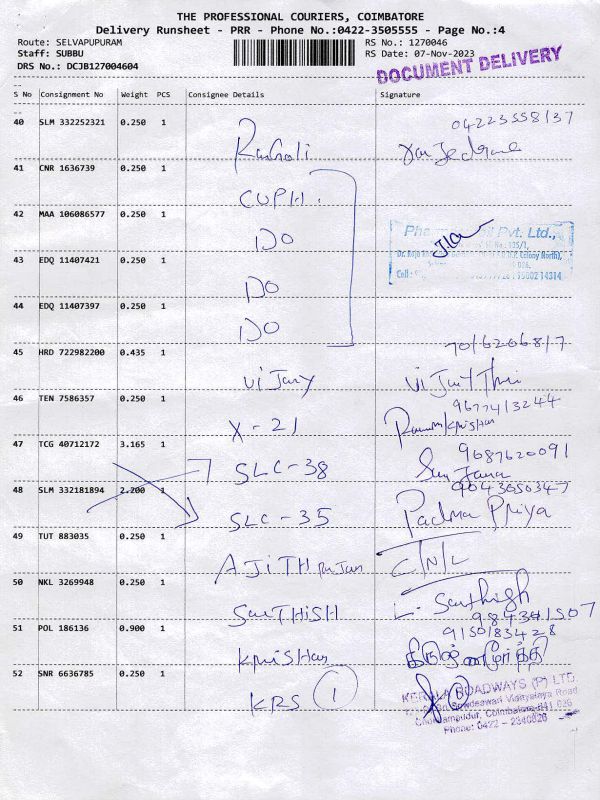 THE PROFESSIONAL COURIERS, COIMBATORE
Delivery Runsheet - PRR - Phone No.:0422-3505555 - Page No.:4
Route: SELVAPUPURAM RS No.: 1270046
Staff: SUBBU RS Date: 07-Nov-2023
DRS No.: DCJB127004604
DOCUMENT DELIVERY
S No Consignment No Weight PCS Consignee Details Signature
40 SLM 332252321 0.250 1
41 CNR 1636739 0.250 1 CUPH.
42 MAA 106086577 0.250 1 DO
Pvt. Ltd.,
43 EDQ 11407421 0.250 1 DO
44 EDQ 11407397 0.250 1 DO
45 HRD 722982200 0.435 1 7016206817
46 TEN 7586357 0.250 1 X-21 9677413244
47 TCG 40712172 3.165 1 SLC-38 9087620091
48 SLM 332181894 2.200 1 SLC-35 9043050347
Padma Priya
49 TUT 883035 0.250 1 AJITH C/N/L
50 NKL 3269948 0.250 1 SanTHISH L. Santhish
984341507
51 POL 186136 0.900 1 KriSHan 9150183428
52 SNR 6636785 0.250 1 KRS 1
KERALA ROADWAYS (P) LTD.
Coimbatore-641 026
Phone: 0422 - 2340826